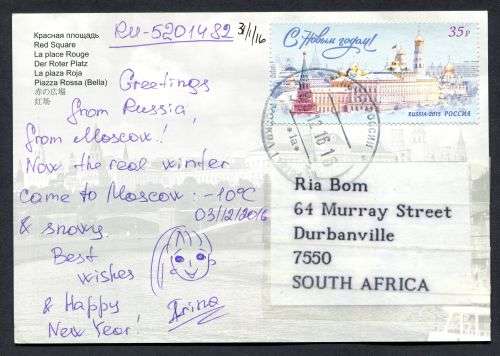 RU-5201482 3/1/16
Красная площадь
Red Square
La place Rouge
Der Roter Platz
La plaza Roja
Piazza Rossa (Bella)
赤の広場
红场
Greetings
from Russia,
from Moscow!
Now the real winter
came to Moscow: -10°C
03/12/2016
& snowy.
Best
wishes
& Happy
New Year!
Irina
С Новым годом!
35р
RUSSIA·2015 РОССИЯ
РОССИЯ
Ria Bom
64 Murray Street
Durbanville
7550
SOUTH AFRICA